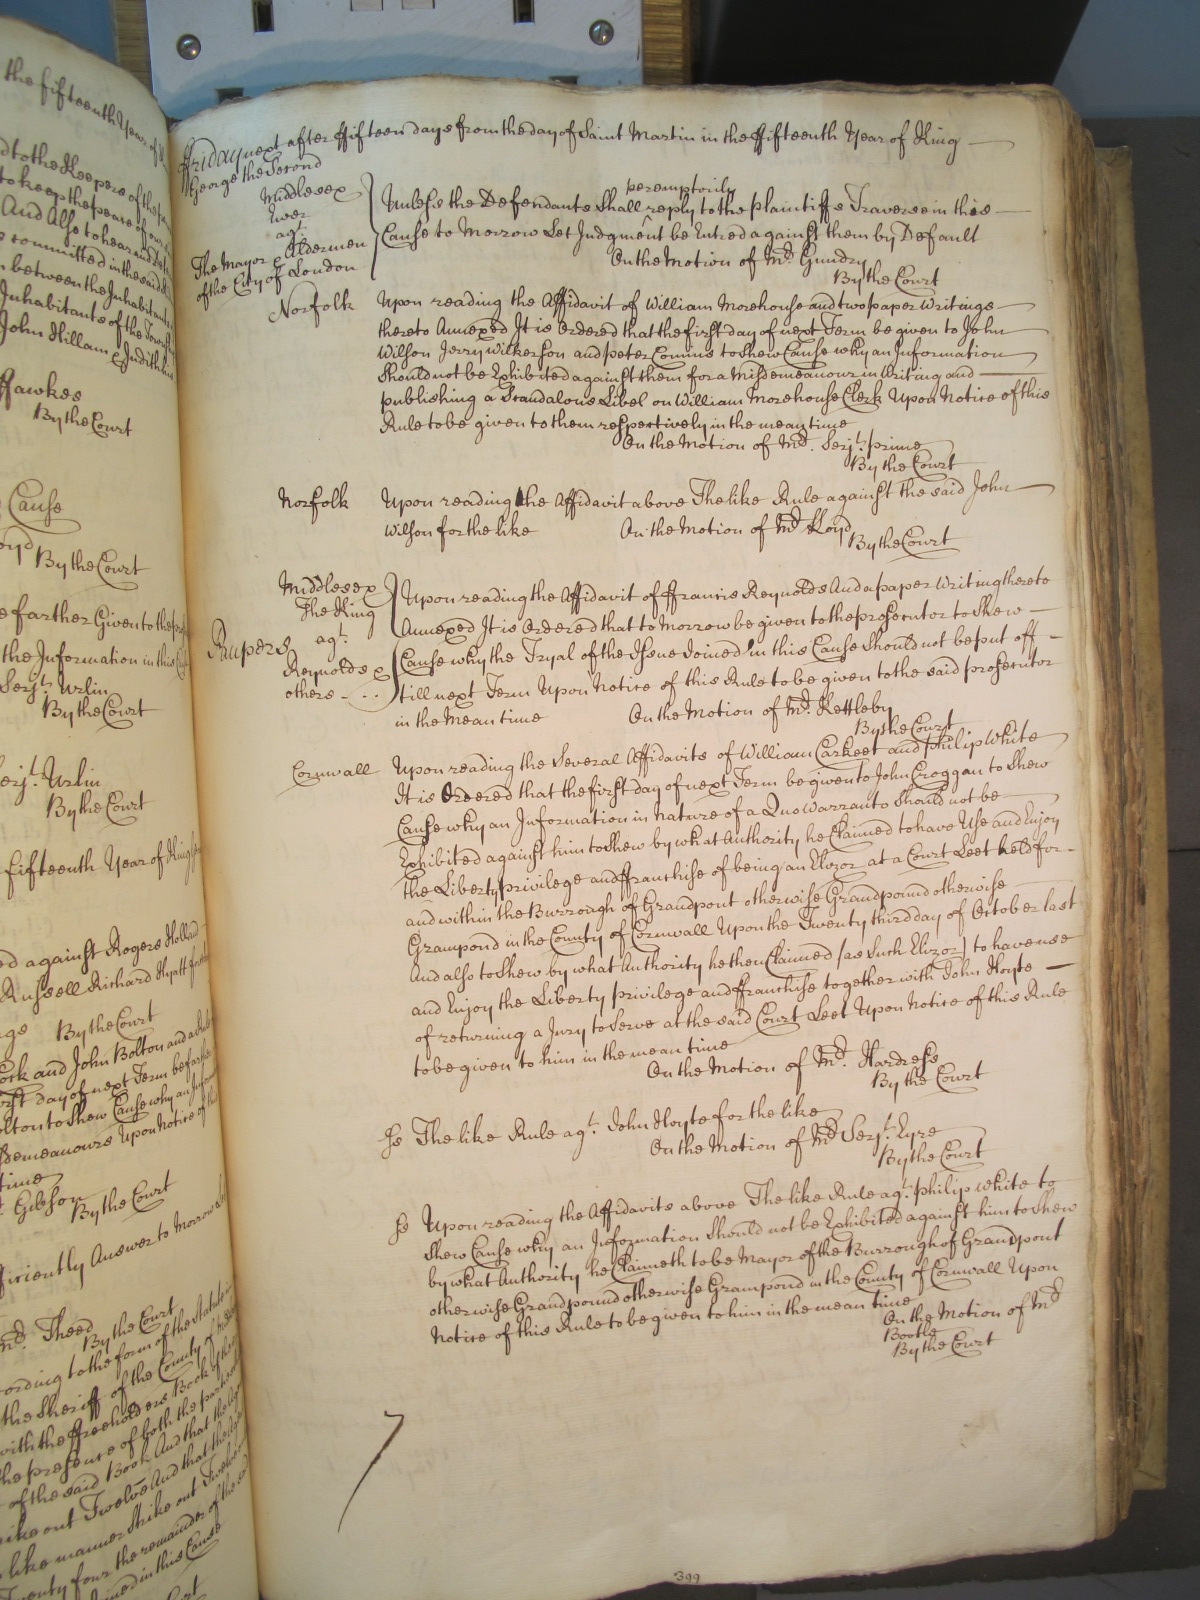 the fifteenth Year of
d to the Keepers of the
to keep the peace of
And Also to hear and
committed in the said
between the Inhabitants
Inhabitants of the Town
John Hillam & Judith
Hawkes
By the Court
Cause
By the Court
farther Given to the
the Information in this
Serjt. Urlin
By the Court
Serjt. Urlin
By the Court
fifteenth Year of King
ed against Rogers Holland
Russell Richard Hyatt
By the Court
and John Bolton and a
first day of next Term be
Bolton to Shew Cause why an Infor
Misdemeanours Upon Notice of
time
Gibson
By the Court
ficiently Answer to Morrow
Mr. Theed
By the Court
cording to the form of the Statute
the Sheriff of the County of
with the ffreeholders Book of
the presence of both the parties
of the said Book And that the
strike out Twelve And that the
like manner Strike out Twelve
Twenty four the remainder of the
Joined in this Cause
ffriday next after ffifteen days from the day of Saint Martin in the ffifteenth Year of King
George the Second
Middlesex
agt.
The Mayor & Aldermen
of the City of London
peremptorily
Unless the Defendants Shall reply to the plaintiffs Traverse in this
Cause to Morrow Let Judgment be Entred against them by Default
On the Motion of Mr. Gundry
By the Court
Norfolk
Upon reading the Affidavit of William Morehouse and two paper Writings
thereto Annexed It is Ordered that the first day of next Term be given to John
Wilson Jerry Wilkerson and peter Comins to shew Cause why an Information
Should not be Exhibited against them for a Misdemeanour in Writing and
publishing a Scandalous Libel on William Morehouse Clerk Upon Notice of this
Rule to be given to them respectively in the mean time
On the Motion of Mr. Serjt. prime
By the Court
Norfolk
Upon reading the Affidavit above The like Rule against the said John
Wilson for the like
On the Motion of Mr. Lloyd
By the Court
Middlesex
The King
agt.
Reynolds &
others
Paupers
Upon reading the Affidavit of ffrancis Reynolds And a paper Writing thereto
Annexed It is Ordered that to Morrow be given to the prosecutor to Shew
Cause why the Tryal of the Issue Joined in this Cause Should not be put off
till next Term Upon Notice of this Rule to be given to the said prosecutor
in the Mean time
On the Motion of Mr. Kettleby
By the Court
Cornwall
Upon reading the Several Affidavits of William Carkeet and philip White
It is Ordered that the first day of next Term be given to John Croggan to Shew
Cause why an Information in Nature of a Quo Warranto Should not be
Exhibited against him to Shew by what Authority he Claimed to have Use and Enjoy
the Liberty privilege and ffranchise of being an Elizor at a Court Leet held for
and within the Burrough of Grandpont otherwise Grandpound otherwise
Grampond in the County of Cornwall Upon the Twenty third day of October last
And also to Shew by what Authority he then Claimed (as Such Elizor) to have use
and Enjoy the Liberty privilege and ffranchise together with John Hoyte
of returning a Jury to Serve at the said Court Leet Upon Notice of this Rule
to be given to him in the mean time
On the Motion of Mr. Hardress
By the Court
Is The like Rule agt. John Hoyte for the like
On the Motion of Mr. Serjt. Eyre
By the Court
Is Upon reading the Affidavits above The like Rule agt. philip White to
Shew Cause why an Information Should not be Exhibited against him to Shew
by what Authority he Claimeth to be Mayor of the Burrough of Grandpont
otherwise Grandpound otherwise Grampond in the County of Cornwall Upon
Notice of this Rule to be given to him in the mean time
On the Motion of Mr.
Bootle
By the Court
399